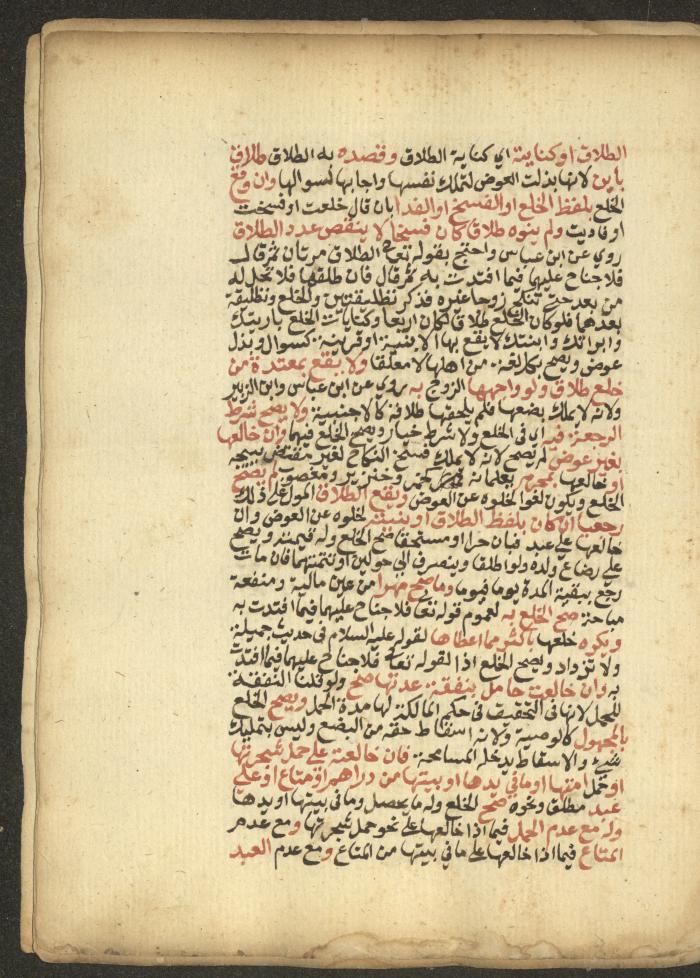 الطلاق او كنايته اي كناية الطلاق وقصده به الطلاق طلاق
باين لانها بذلت العوض لتملك نفسها واجابها لسوالها وان وقع
الخلع بلفظ الخلع او الفسخ او الفدا بان قال خلعت او فسخت
او فاديت ولم ينوه طلاق كان فسخا لا ينقص عدد الطلاق
روي عن ابن عباس واحتج بقوله تعالى الطلاق مرتان ثم قال
فلا جناح عليهما فيما افتدت به ثم قال فان طلقها فلا تحل له
من بعد حتى تنكح زوجا غيره فذكر تطليقتين والخلع وتطليقة
بعدهما فلو كان الخلع طلاق لكان اربعا وكنايات الخلع باريتك
وابراتك وابنتك لا يقع بها الا بنية او قرينة كسوال وبذل
عوض ويصح بكل لغة من اهلها لا معلقا ولا يقع بمعتدة من
خلع طلاق ولو واجهها الزوج به روي عن ابن عباس وابن الزبير
ولانه لا يملك بضعها فلم يلحقها طلاقه كالاجنبية ولا يصح شرط
الرجعة فيه اي في الخلع ولا شرط خيار ويصح الخلع فيهما وان خالعها
بغير عوض لم يصح لانه لا يملك فسخ النكاح لغير مقتض يبيحه
او خالعها بمحرم يعلمانه كخمر وخنزير ومغصوب لم يصح
الخلع ويكون لغوا لخلوه عن العوض ويقع الطلاق المول على ذلك
رجعيا ان كان بلفظ الطلاق او بنيته لخلوه عن العوض وان
خالعها على عبد فبان حرا او مستحقا صح الخلع وله قيمته ويصح
على رضاع ولده ولو اطلقا وينصرف الى حولين او تتمتهما فان مات
رجع ببقية المدة يوما فيوما وما صح مهرا من عين مالية ومنفعة
مباحة صح الخلع به لعموم قوله تعالى فلا جناح عليهما فيما افتدت به
ويكره خلعها باكثر مما اعطاها لقوله عليه السلام في حديث جميلة
ولا تزداد ويصح الخلع اذا لقوله تعالى فلا جناح عليهما فيما افتدت
به وان خالعت حامل بنفقة عدتها صح ولو قلنا النفقة
للحمل لانها في التحقيق في حكم المالكة لها مدة الحمل ويصح الخلع
بالمجهول كالوصية ولانه اسقاط حقه من البضع وليس بتمليك
شيئ والاسقاط يدخله المسامحة فان خالعته على حمل شجرتها
او حمل امتها او ما في يدها او بيتها من دراهم او متاع او على
عبد مطلق ونحوه صح الخلع وله ما يحصل وما في بيتها او يدها
وله مع عدم الحمل فيما اذا خالعها على نحو حمل شجرتها ومع عدم
المتاع فيما اذا خالعها على ما في بيتها من المتاع ومع عدم العبد